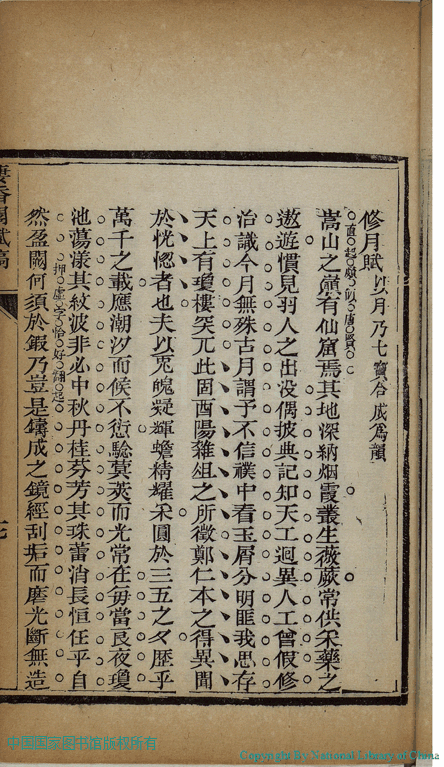 修月賦以月乃七寶合成為韻
直起頗似唐賢
嵩山之巔有仙窟焉其地深納烟霞叢生薇蕨常供采藥之
遨遊慣見羽人之出没偶披典記知天工迥異人工曾假修
治識今月無殊古月謂予不信襆中看玉屑分明匪我思存
天上有瓊樓突兀此固酉陽雜俎之所徵鄭仁本之得異聞
於恍惚者也夫以兎魄凝輝蟾精耀采圓於三五之夕歷乎
萬千之載應潮汐而候不愆驗蓂莢而光常在毎當良夜瓊
池蕩漾其紋波非必中秋丹桂芬芳其珠蕾消長恒任乎自
押虚字恰好翻起
然盈闕何須於鍜乃豈是鑄成之鏡經刮垢而磨光斷無造
賦稿
中国国家图书馆版权所有
Copyright By National Library of China